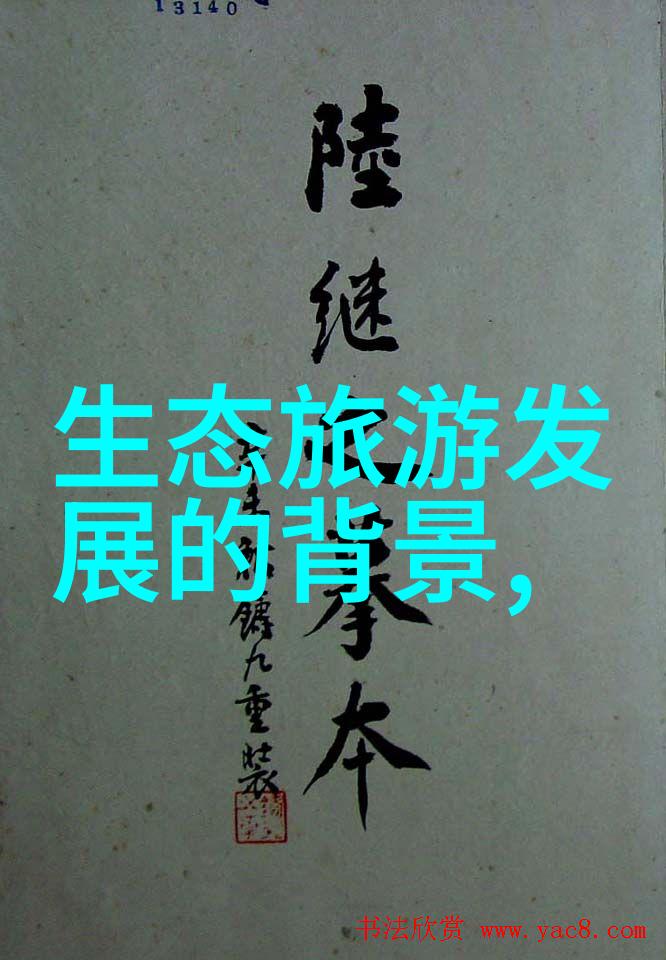 13140
陸継之摹本
未鑄九重裝
生态旅游发
展的背景,
书法欣赏 www.yac8.com